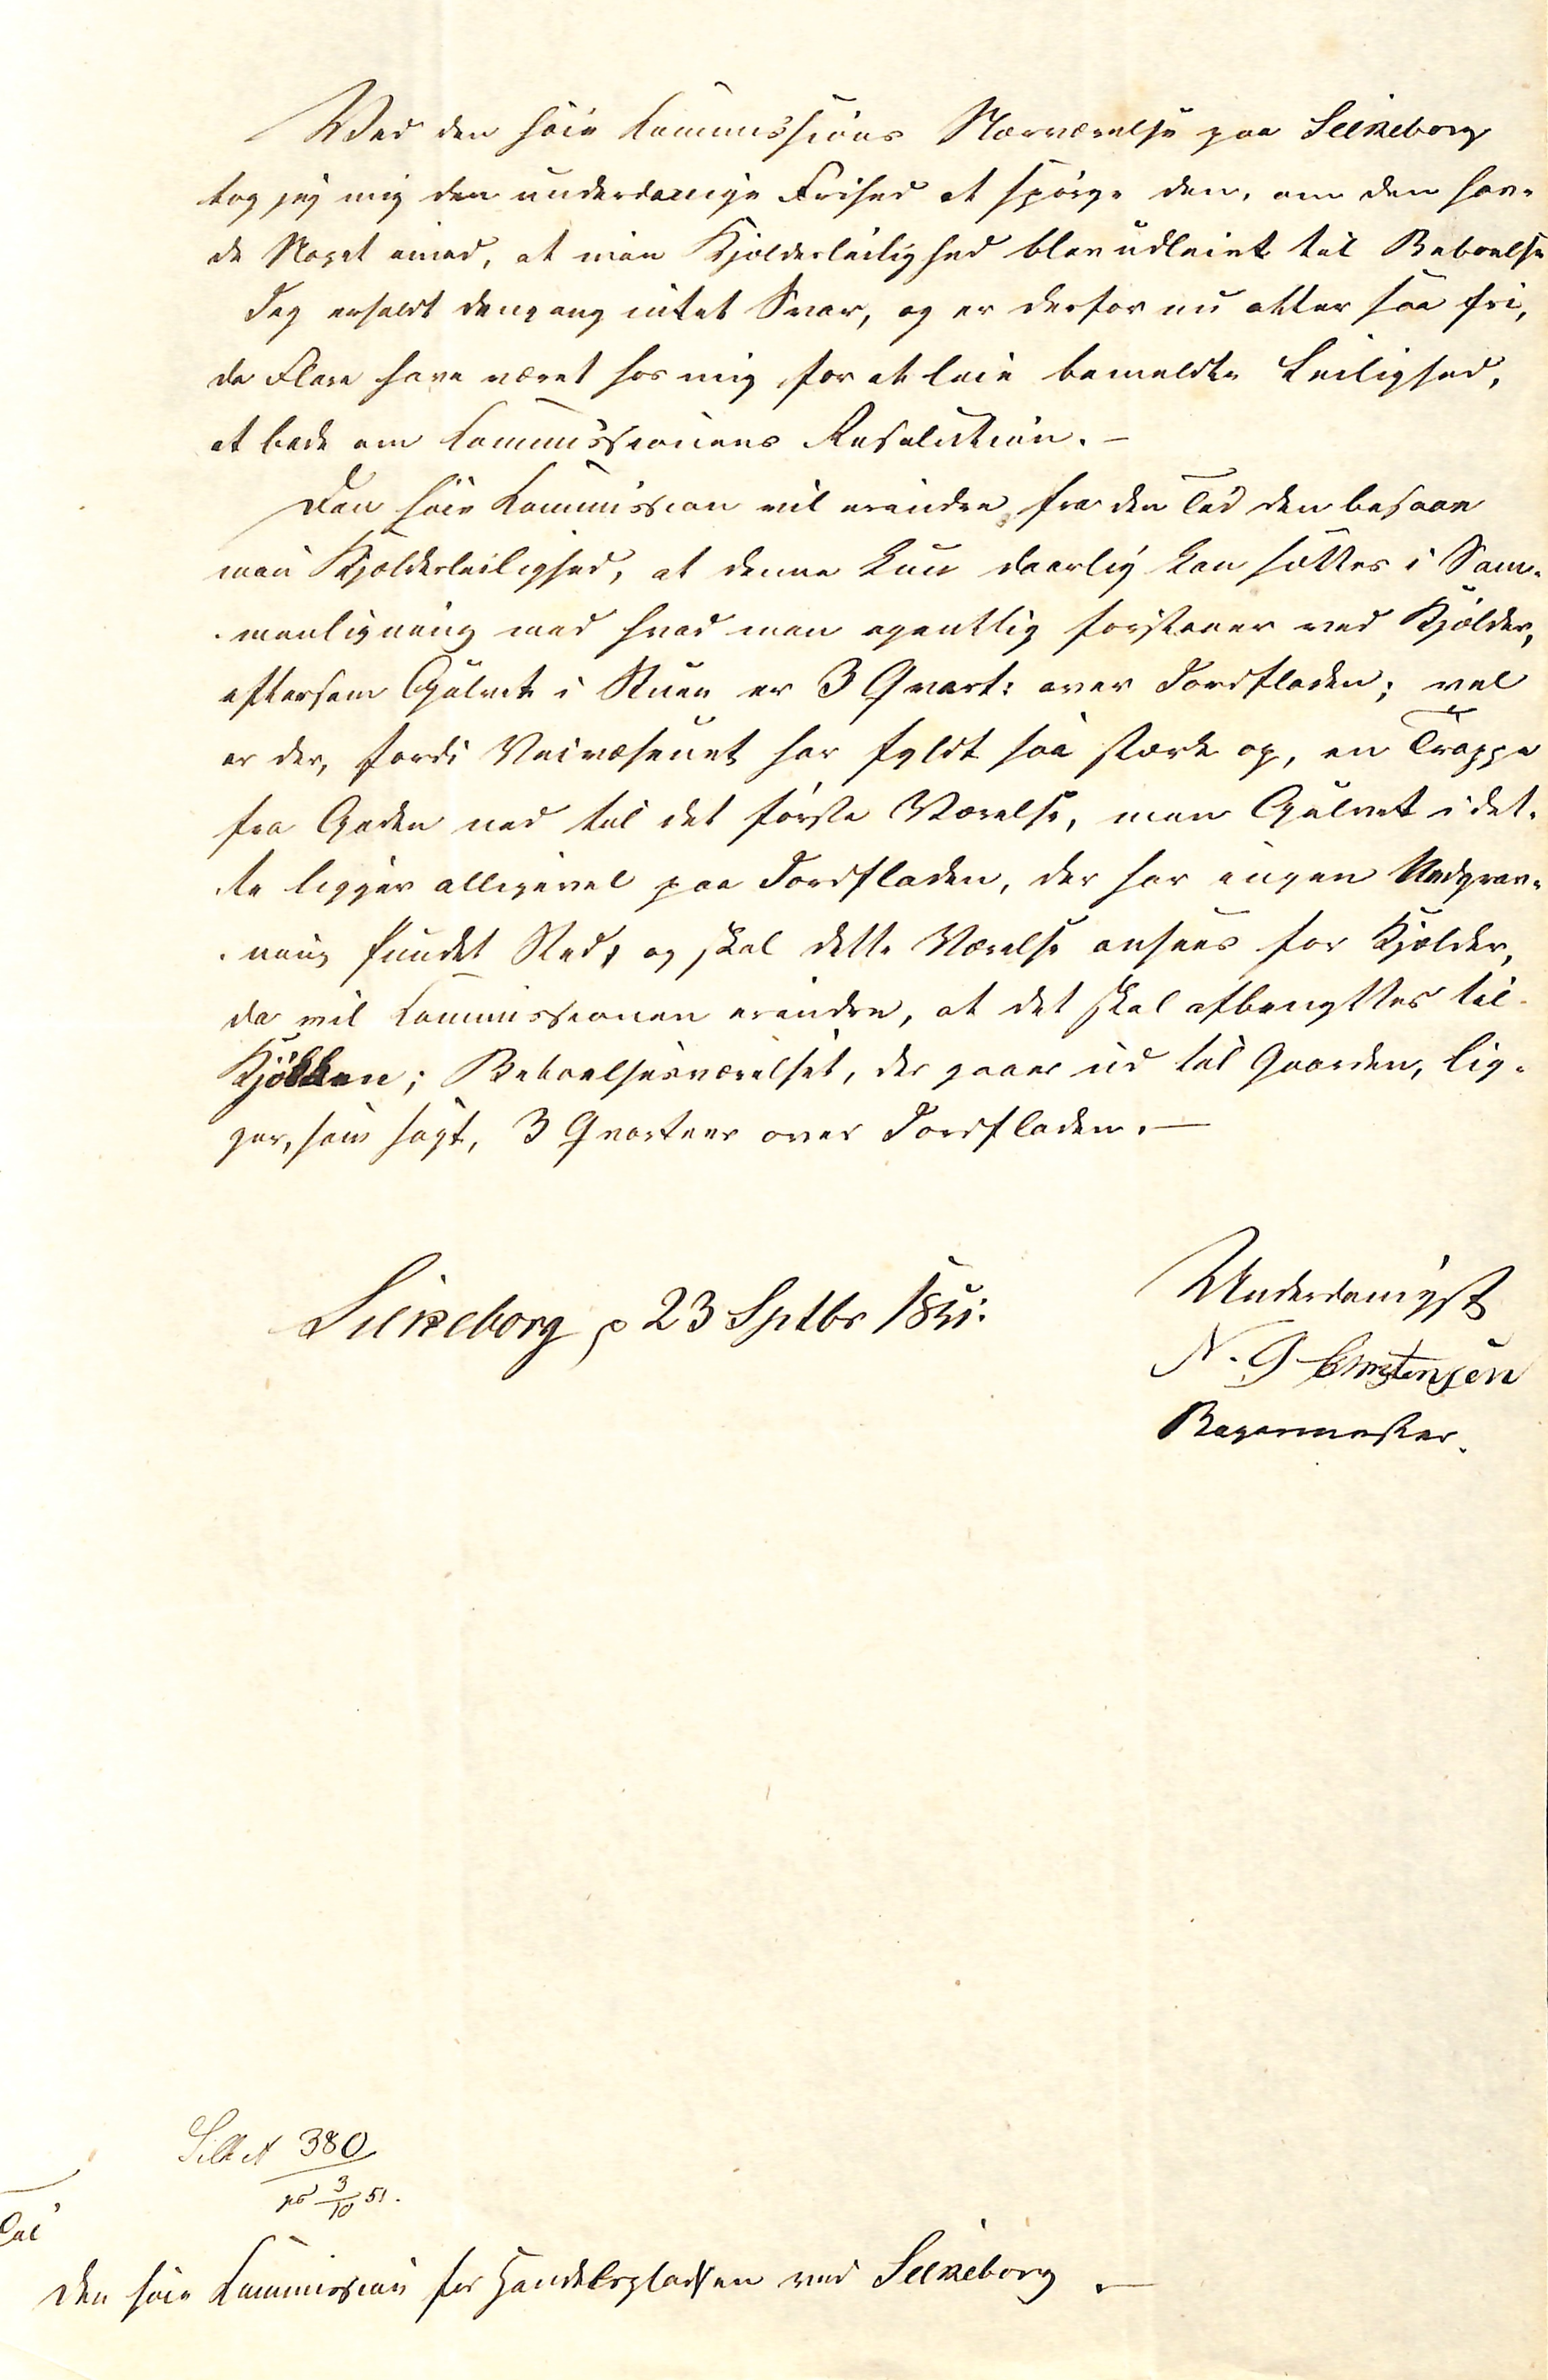 Ved den höie Kommissions Nærværelse paa Silkeborg
tog jeg mig den underdanige Frihed at spörge den, om den hav-
de Noget imod, at min Kjælderleilighed blev udleiet til Beboelse
Jeg erholdt dengang intet Svar, og er derfor nu atter saa fri,
da Flere have været hos mig for at leie bemeldte Leilighed,
at bede om Kommissionens Resolution. —
Den höie Kommission vil erindre, fra den Tid den besaae
min Kjælderleilighed, at denne kun daarlig kan sættes i Sam-
menligning med hvad man egentlig forstaaer ved Kjælder,
eftersom Gulvet i Stuen er 3 Qvart: over Jordfladen; vel
er der, fordi Veivæsenet har fyldt saa stærk op, en Trappe
fra Gaden ned til det förste Værelse, men Gulvet i det-
te ligger alligevel paa Jordfladen, der har ingen Nedgrav-
ning fundet Sted, og skal dette Værelse ansees for Kjælder,
da vil Kommissionen erindre, at det skal afbenyttes til
Kjökken; Beboelsesværelset, der gaaer ud til Gaarden, lig-
ger, som sagt, 3 Qvarteer over Jordfladen. —
Silkeborg, 23 Sptbr 1851.
Underdanigst
N. G. Christensen
Bagermester.
Silk A 380
3/10 51.
Til
den höie Kommission for Handelspladsen ved Silkeborg. —